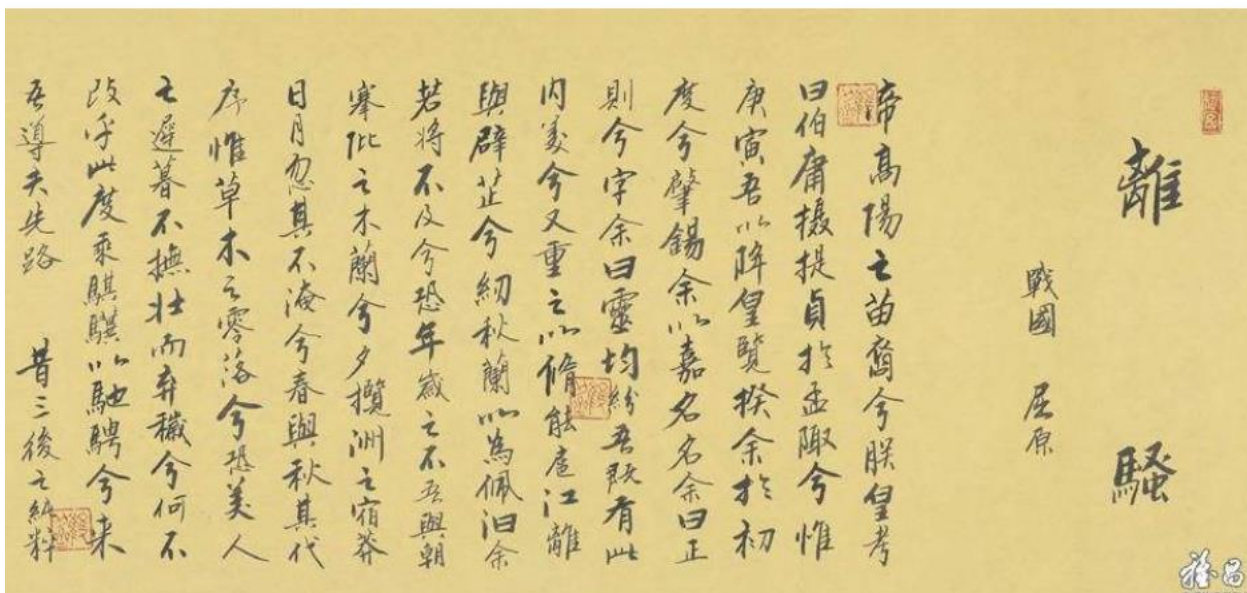 離騷
戰國 屈原
帝高陽之苗裔兮朕皇考
曰伯庸攝提貞於孟陬兮惟
庚寅吾以降皇覽揆余於初
度兮肇錫余以嘉名名余曰正
則兮字余曰靈均紛吾既有此
內美兮又重之以脩能扈江離
與辟芷兮紉秋蘭以為佩汩余
若將不及兮恐年歲之不吾與朝
搴阰之木蘭兮夕攬洲之宿莽
日月忽其不淹兮春與秋其代
序惟草木之零落兮恐美人
之遲暮不撫壯而弃穢兮何不
改乎此度乘騏驥以馳騁兮来
吾導夫先路 昔三後之純粹